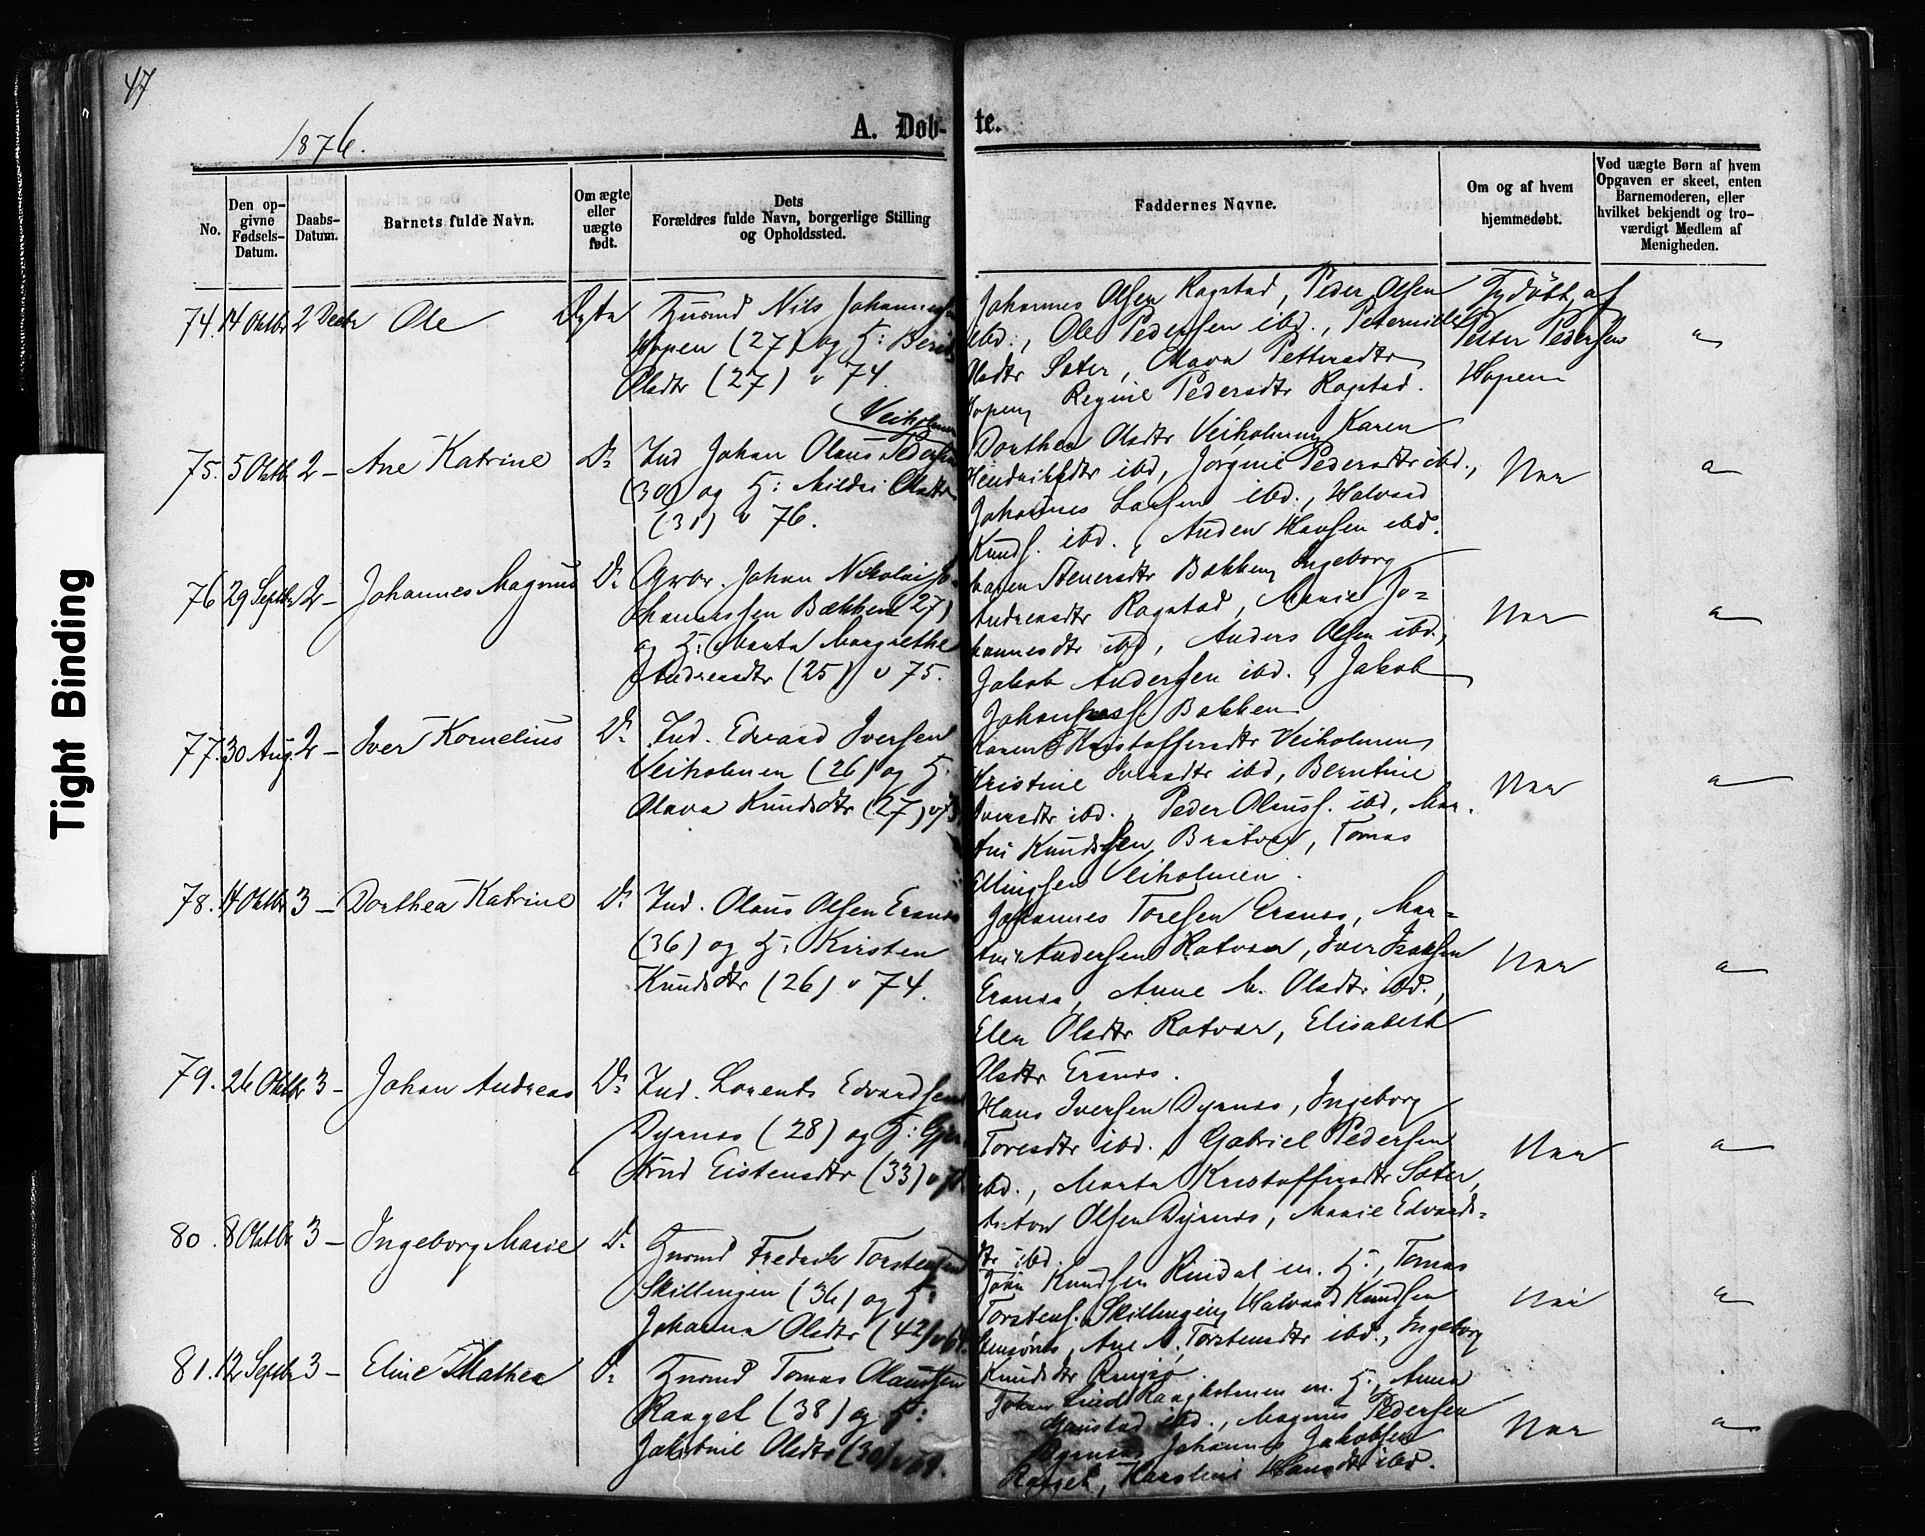 47
1876.
A. Døb-
te.
No.
Den op-
givne
Fødsels-
Datum.
Daabs-
Datum.
Barnets fulde Navn.
Om ægte
eller
uægte
født.
Dets
Forældres fulde Navn, borgerlige Stilling
og Opholdssted.
Faddernes Navne.
Om og af hvem
hjemmedøbt.
Ved uægte Børn af hvem
Opgaven er skeet, enten
Barnemoderen, eller
hvilket bekjendt og tro-
værdigt Medlem af
Menigheden.
74. 14 Oktbr 2 Decbr Ole Ægta
Husmd Nils Johannessen
Hopen (27) og H: Berit
Olsdtr (27) v 74.
Johannes Olsen Rogstad, Peder Olsen
ibd., Ole Pedersen ibd., Peternille
Olsdtr Sæter, Mava Pettersdtr
Hopen, Regine Pedersdtr Rogstad.
Petter Pedersen
Hopen
75. 5 Oktb 2 - Ane Katrine Do
Veiholmen
Ind Johan Olaus Pedersen
(30) og H: Mildri Olsdtr
(31) v 76.
Dorthea Olsdtr Veiholmen, Karen
Hendriksdtr ibd, Jørgine Pedersdtr ibd.,
Johannes Larsen ibd., Halvard
Knuds. ibd., Anders Hansen ibd.
Nar
76 29 Septbr 2 - Johannes Magnus Do
Grbr. Johan Nikolai Jo-
hannessen Bækken (27)
og H: Marta Margrethe
Andreasdtr (25) v 75.
Maren Steversdtr Bakken, Ingeborg
Andreasdtr Rogstad, Marie Jo-
hannesdtr ibd, Anders Olsen ibd.,
Jakob Andersen ibd., Jakob
Johanness. Bakken
Nar
77. 30 Aug. 2 - Iver Kornelius Do
Ind. Edvard Iversen
Veiholmen (26) og H.
Olava Knudsdtr (27) v 73
Karen Kristoffersdtr Veiholmen,
Kristine Iversdtr ibd, Berntine
Iversdtr ibd., Peder Olauss. ibd, Mar-
tin Knudssen Bratvær, Tomas
Ellingsen Veiholmen.
Nar
78. 14 Oktbr 3 - Dorthea Katrine Do
Ind. Olaus Olsen Ersnes
(36) og H: Kirsten
Knudsdtr (26) v 74.
Johannes Toresen Ersnes, Mar-
tin Andersen Rotvær, Iver Isaksen
Ersnes, Anne M. Olsdtr ibd.,
Elen Olsdtr Rotvær, Elisabeth
Olsdtr Ersnes.
Nar
79. 26 Oktbr 3 - Johan Andreas Do
Ind. Lorents Edvardsen
Dyrnes (28) og H: Gjer-
trud Eistensdtr (33) v 71.
Hans Iversen Dyrnes, Ingeborg
Toresdtr ibd., Gabriel Pedersen
ibd., Marta Kristoffersdtr Sæter,
Anton Olsen Dyrnes, Marie Edvards-
dtr ibd.
Nar
80. 8 Oktbr 3 - Ingeborg Marie Do
Husmd Fredrik Torstensen
Skillingen (36) og H:
Johanna Olsdtr (42) v 61.
John Knudsen Rindal m. H., Tomas
Torstens. Skillingen, Halvard Knudsen
Ane M. Torstensdtr ibd., Ingeborg
Knudsdtr
Nei
81. 12 Septbr 3 - Eline Mathea Do
Husmd Tomas Olaussen
Raaget (38) og H:
Jakobine Olsdtr (30) v 69.
Johan Lind Raagholmen m. H., Anna
ibd., Magnus Pedersen
Dyrnes, Johannes Jakobsen
Raaget, Karoline Hansdtr ibd.
Nar
Tight Binding